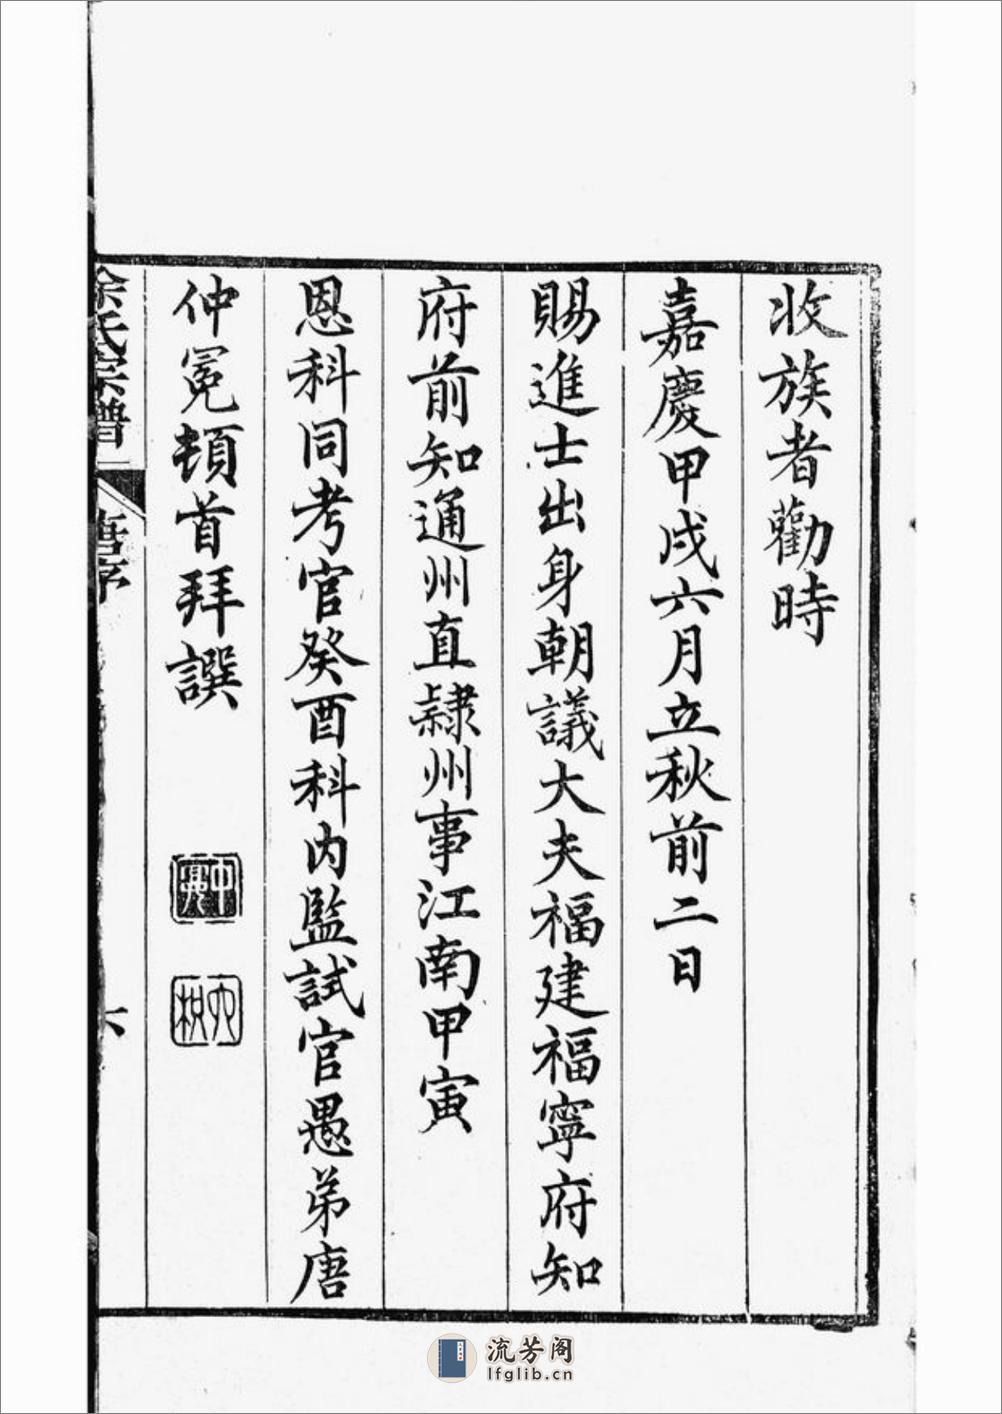 收族者勸時
嘉慶甲戌六月立秋前二日
賜進士出身朝議大夫福建福寧府知
府前知通州直隸州事江南甲寅
恩科同考官癸酉科內監試官愚弟唐
仲冕頓首拜譔
仲冕
六枳
余氏宗譜
唐序
六
流芳阁
lfglib.cn